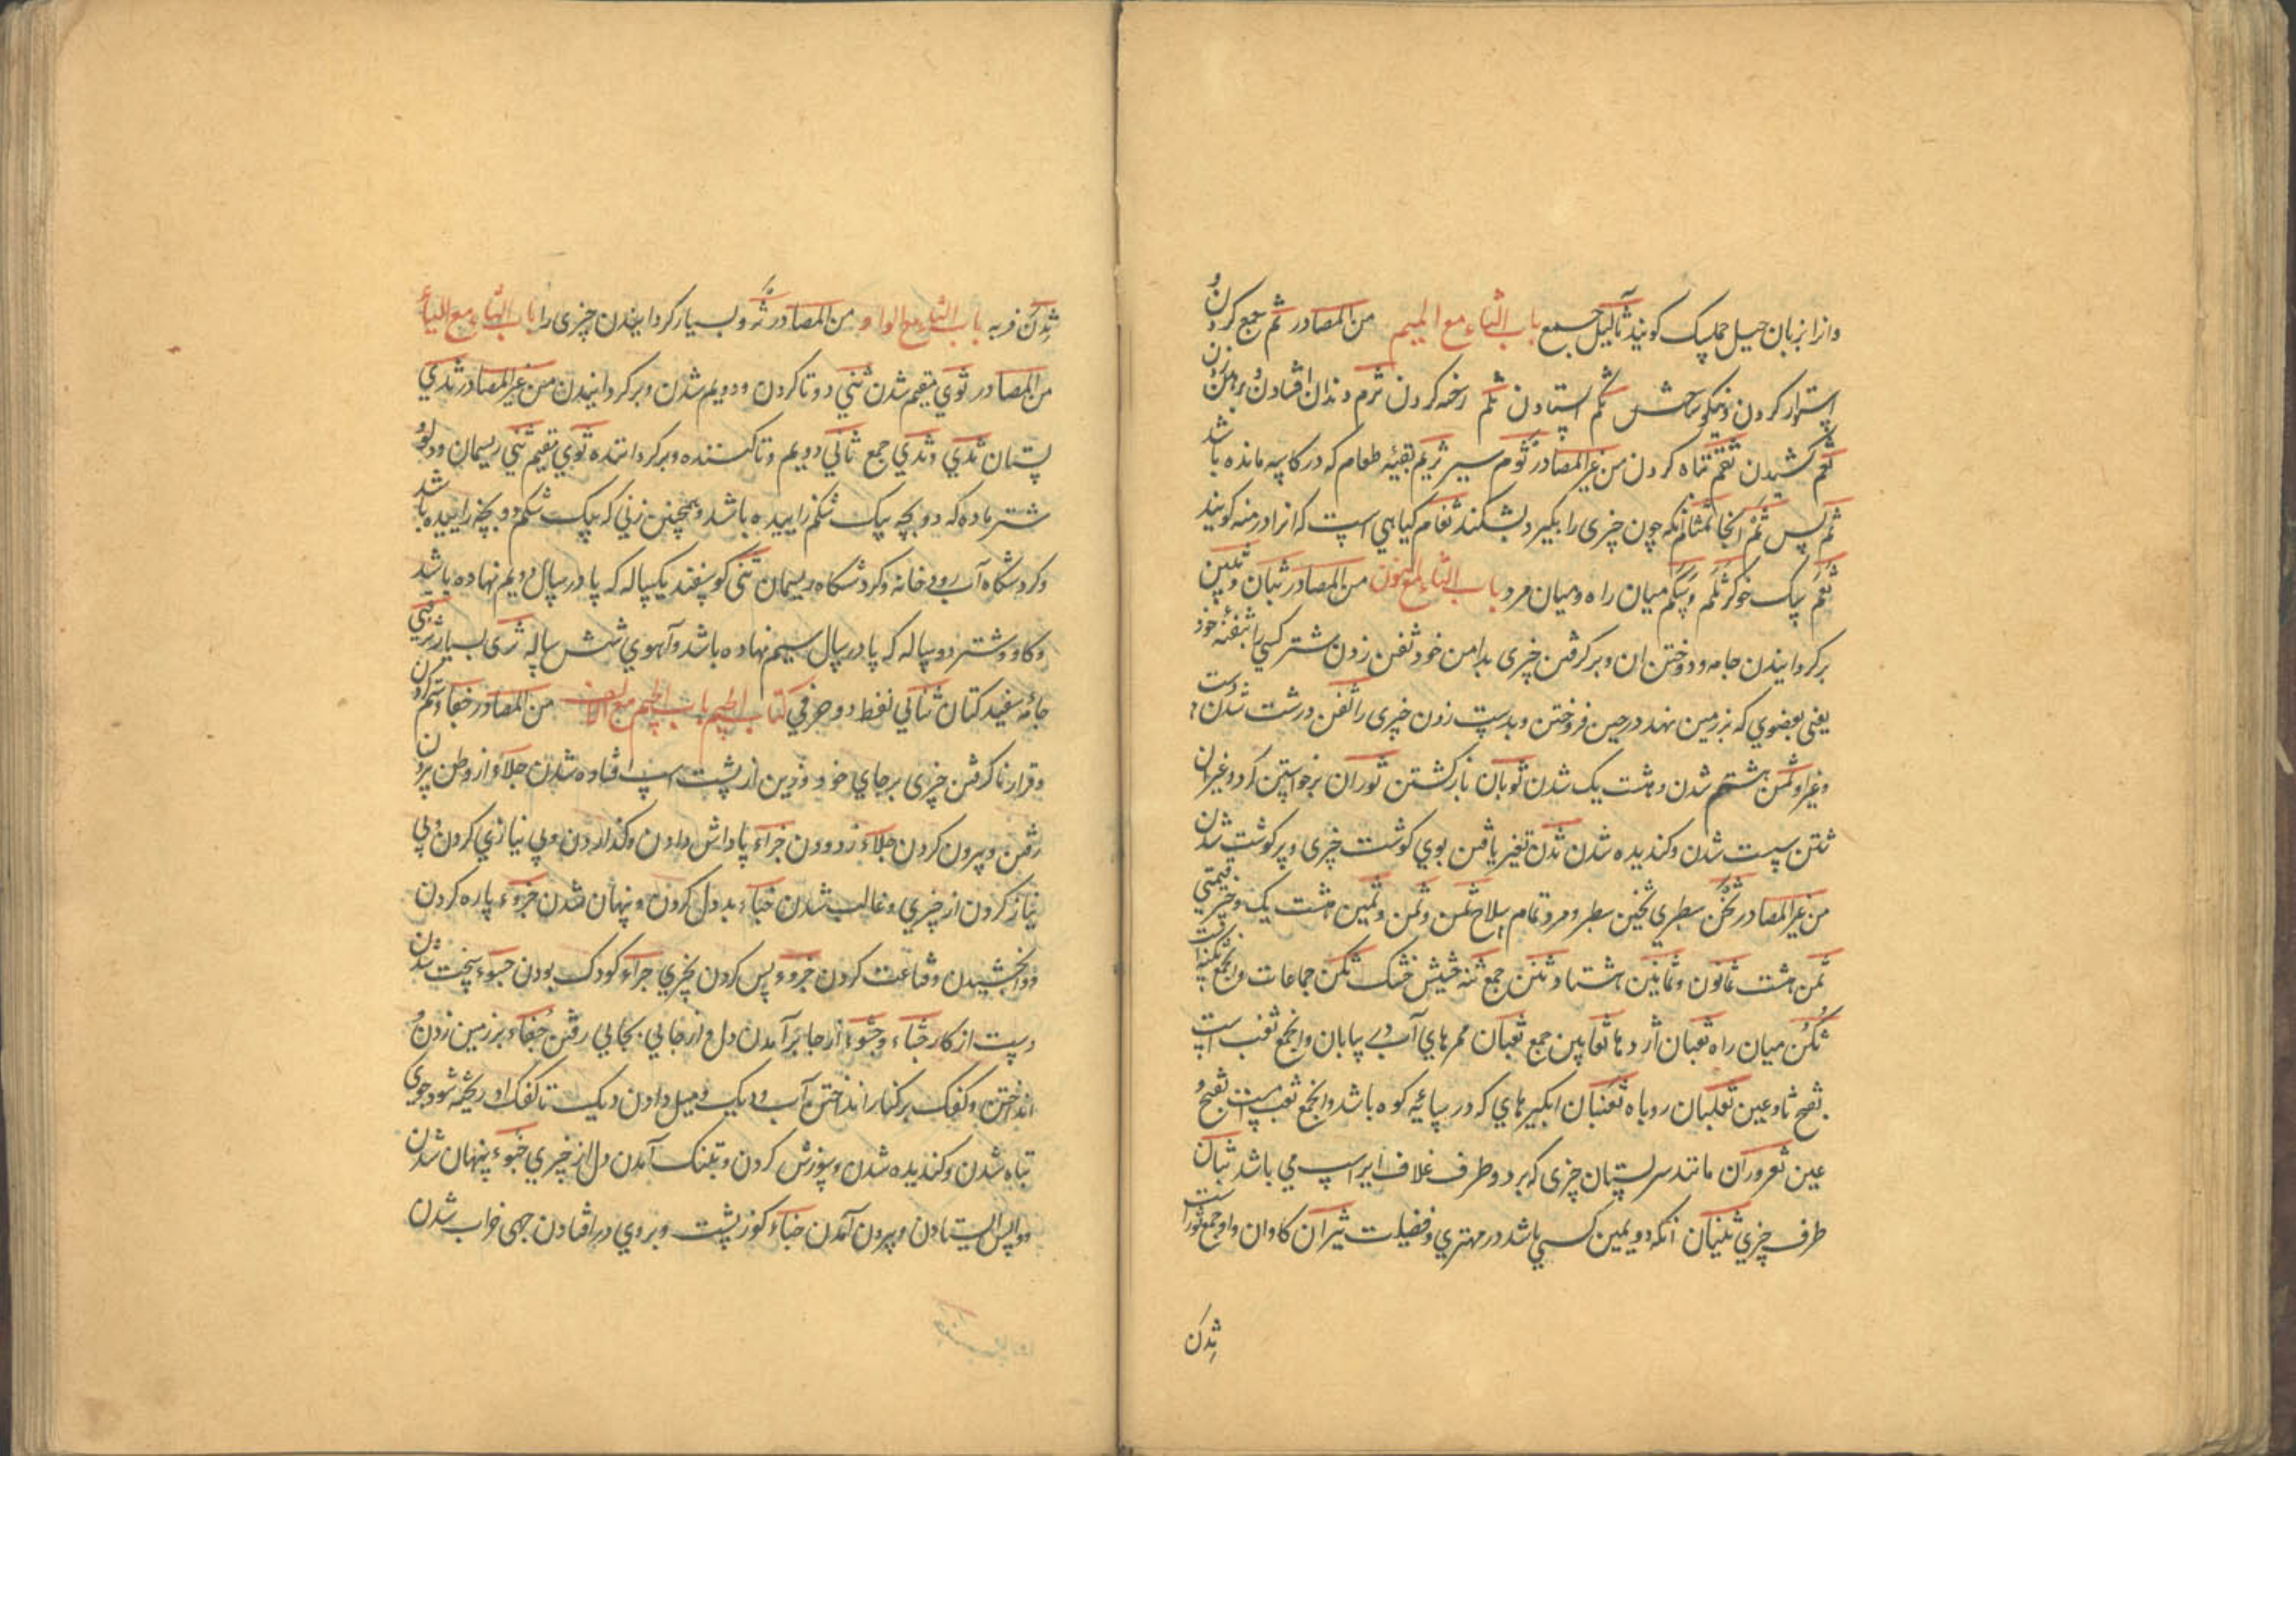 وانرا بزبان جیل جملیک کویند ثآلیل جمع باب الثاء مع المیم من المصادر ثم جمع کردن و
استوار کردن و نیکو ساختن ثکم ایستادن ثلم رخنه کردن ثرم دندان افتادن
ثعم کشیدن ثقم تباه کردن من غیر المصادر ثوم سیر ثریم بقیه طعام که در کاسه مانده باشد
ثم پس ثم انجا انکه چون چیزی را بکیرد بشکند ثغام کیاهی است که انرا درمنه کویند
ثکم میان راه و میان مرد باب الثاء مع النون من المصادر ثبان و ثبن
برکردانیدن جامه و دوختن ان و برکرفتن چیزی بدامن خود ثفن زدن شتر کسی را بثفنه خود
یعنی بعضوی که بزمین نهد در حین فروختن و بدست زدن چیزی را ثفن درشت شدن دست
و غیر او ثمن هشتم شدن و هشت یک شدن ثوبان بازکشتن ثوران برخواستن کرد و غیر ان
ثتن سست شدن و کندیده شدن ثدن تغیر یافتن بوی کوشت چیزی و پرکوشت شدن
من غیر المصادر ثخن سطبری ثخین سطبر و مرد تمام سلاح ثمن و ثمن و ثمین هشت یک و چیز قیمتی
ثمن هشت ثمانون و ثمانین هشتاد ثنن جمع ثنه حشیش خشک ثکن جماعات والجمع ثکنه است
ثکن میان راه ثعبان اژدها ثعابین جمع ثعبان ممرهای آب در بیابان والجمع ثعب است
بفتح ثا و عین ثعلبان روباه ثغبان ابکیرهای که در سایه کوه باشد والجمع ثغب است بفتح و
عین ثعروران مانند سر پستان چیزی که بر دو طرف غلاف ایر اسپ می باشد ثبان
طرف چیزی ثنیان انکه دویمین کسی باشد در مهتری و فضیلت ثیران کاوان و او جمع ثور است
ثدن
ثدن فربه باب الثاء مع الواو من المصادر ثرو بسیار کردانیدن چیزی را باب الثاء مع الیاء
من المصادر ثوی مقیم شدن ثنی دوتا کردن و دویم شدن و برکردانیدن من غیر المصادر ثدی
پستان ثدی و ثدی جمع ثانی دویم و تا کننده و برکرداننده ثوی مقیم ثنی ریسمان و دلو و
شتر ماده که دو بچه بیک شکم زاییده باشد و همچنین زنی که بیک شکم دو بچه زاییده باشد
و کردشکاه آب رودخانه و کردشکاه ریسمان ثنی کوسفند یکساله که پا در سال دویم نهاده باشد
و کاو و شتر دو ساله که پا در سال سیم نهاده باشد و آهوی شش ساله ثری بسیار
جامه سفید کتان ثنائی لفظ دو حرفی کتاب الجیم باب الجیم مع الالف من المصادر جفا و ستم کردن
و قرار ناکرفتن چیزی بر جای خود و زین از پشت اسپ افتاده شدن جلا و از وطن بیرون
رفتن و بیرون کردن جلاء زدودن جزاء پاداش دادن و کذاردن و بی نیازی کردن و بی
نیاز کردن از چیزی و غالب شدن جباء بددل کردن و پنهان شدن جزوء پاره کردن
و وابخشیدن و قناعت کردن جزوء بس کردن بچیزی جراء کودک بودن جسوء سخت شدن
دست از کار جشاء و جشوء از جا برآمدن دل و از جایی بجایی رفتن جفاء بر زمین زدن و
انداختن و کفک بر کنار انداختن آب و دیک و میل دادن دیک تا کفک او ریخته شود جوی
تباه شدن و کندیده شدن و سوزش کردن و بتنک آمدن دل از چیزی جبوء پنهان شدن
و واپس ایستادن و بیرون آمدن جناء کوز پشت و بروی در افتادن جهی خراب شدن